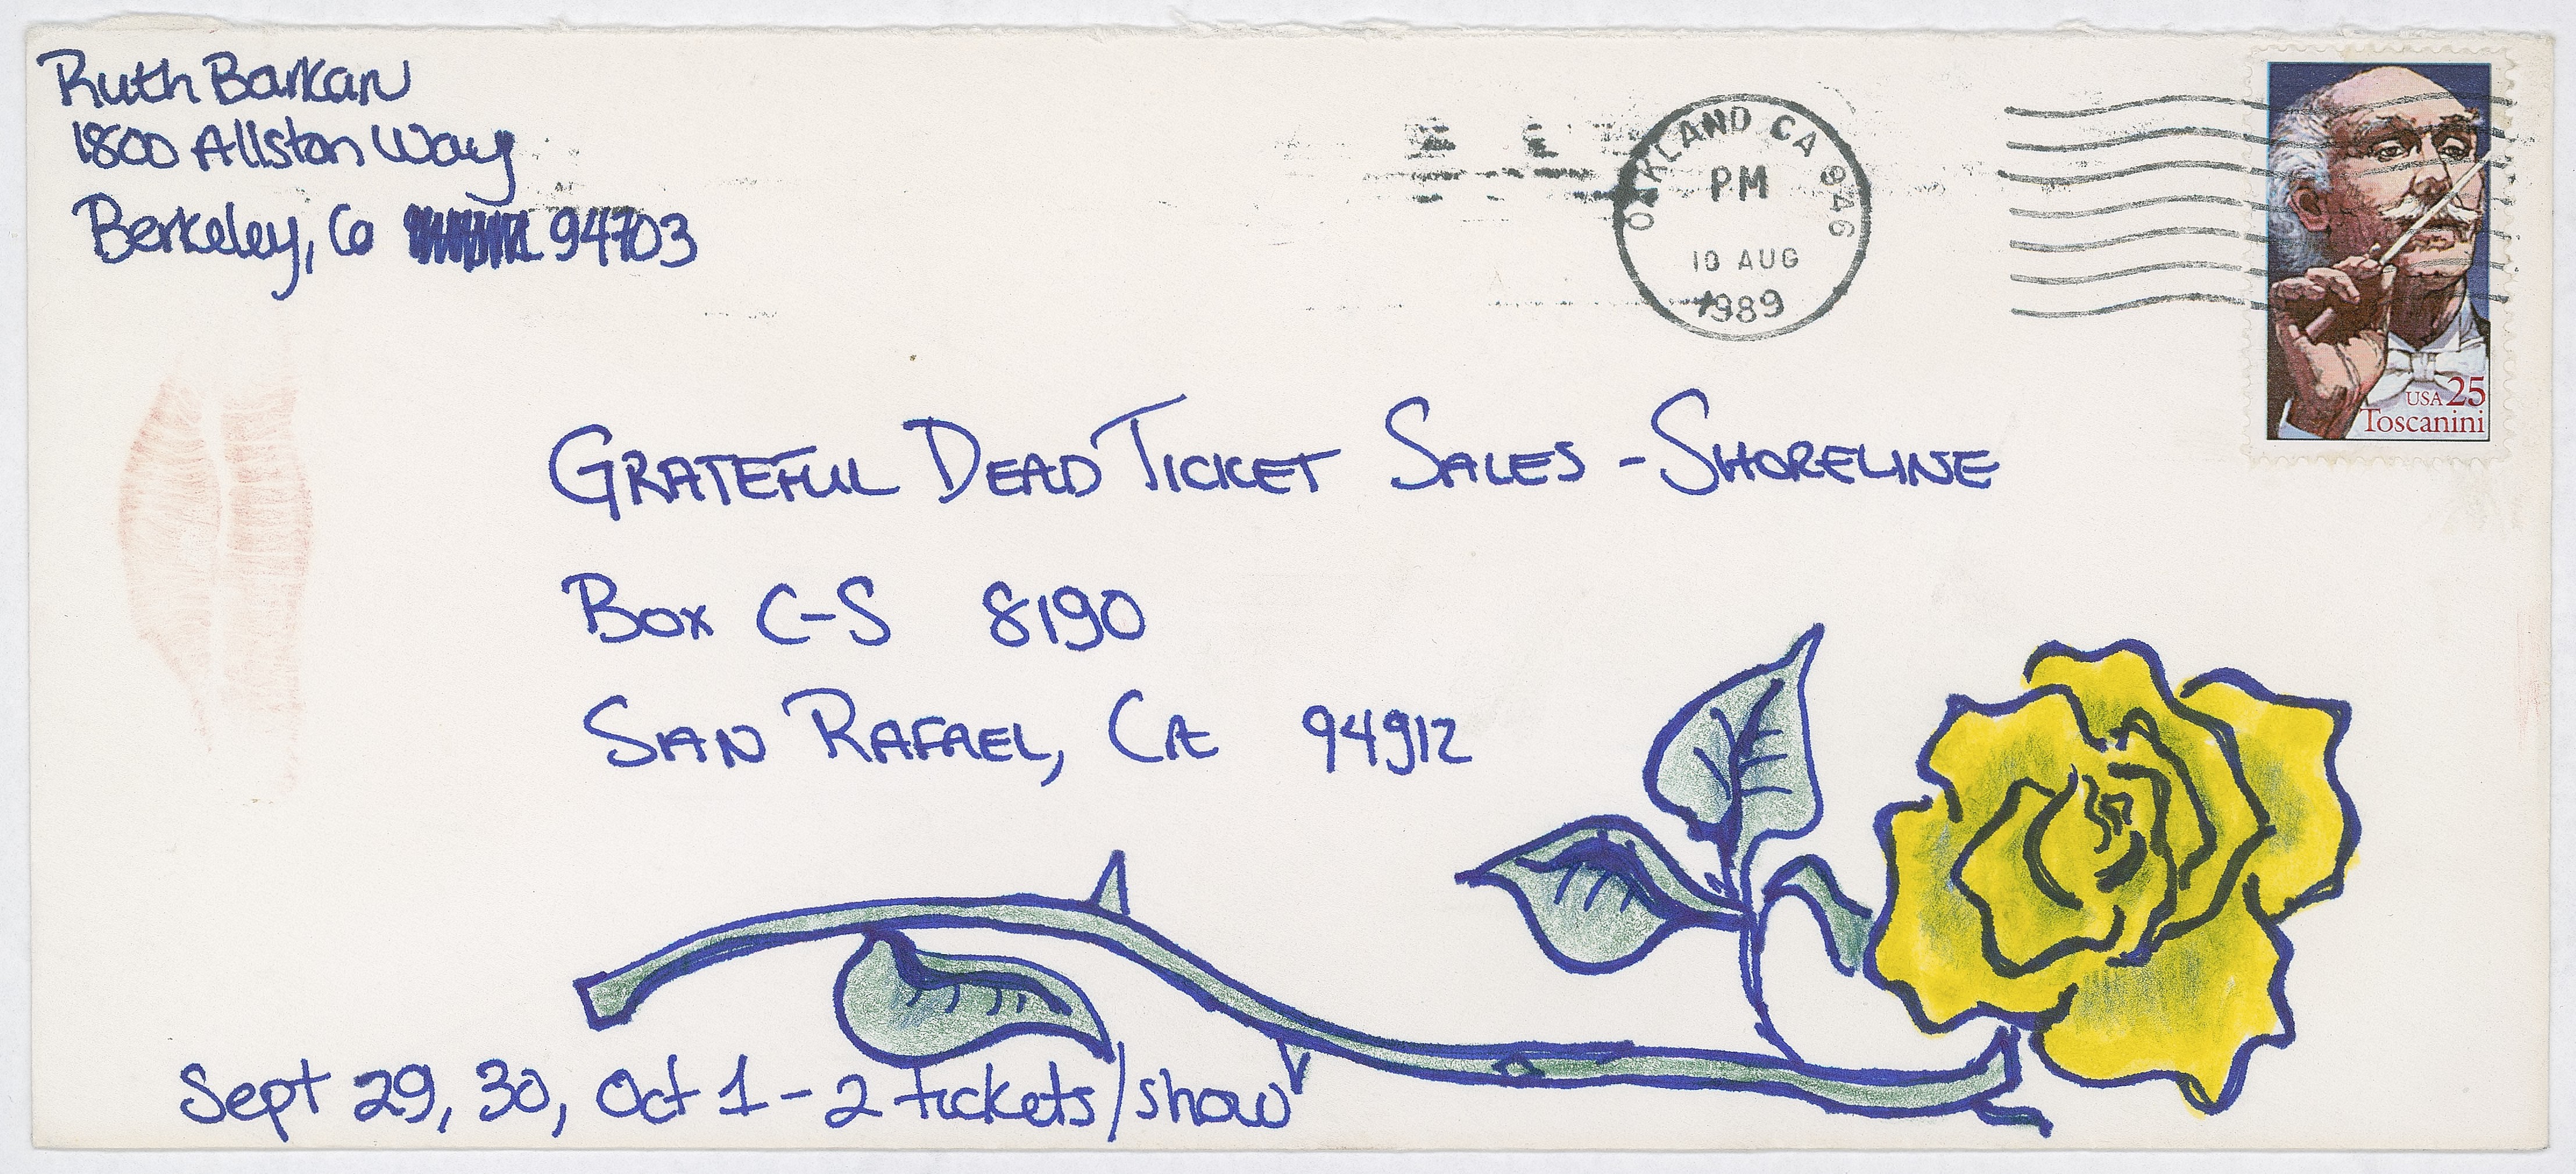 Ruth Barkan
1800 Allston Way
Berkeley, Ca 94703
OAKLAND CA 946
PM
10 AUG
1989
USA 25
Toscanini
GRATEFUL DEAD TICKET SALES - SHORELINE
BOX C-S 8190
SAN RAFAEL, CA 94912
Sept 29, 30, Oct 1 - 2 tickets/show